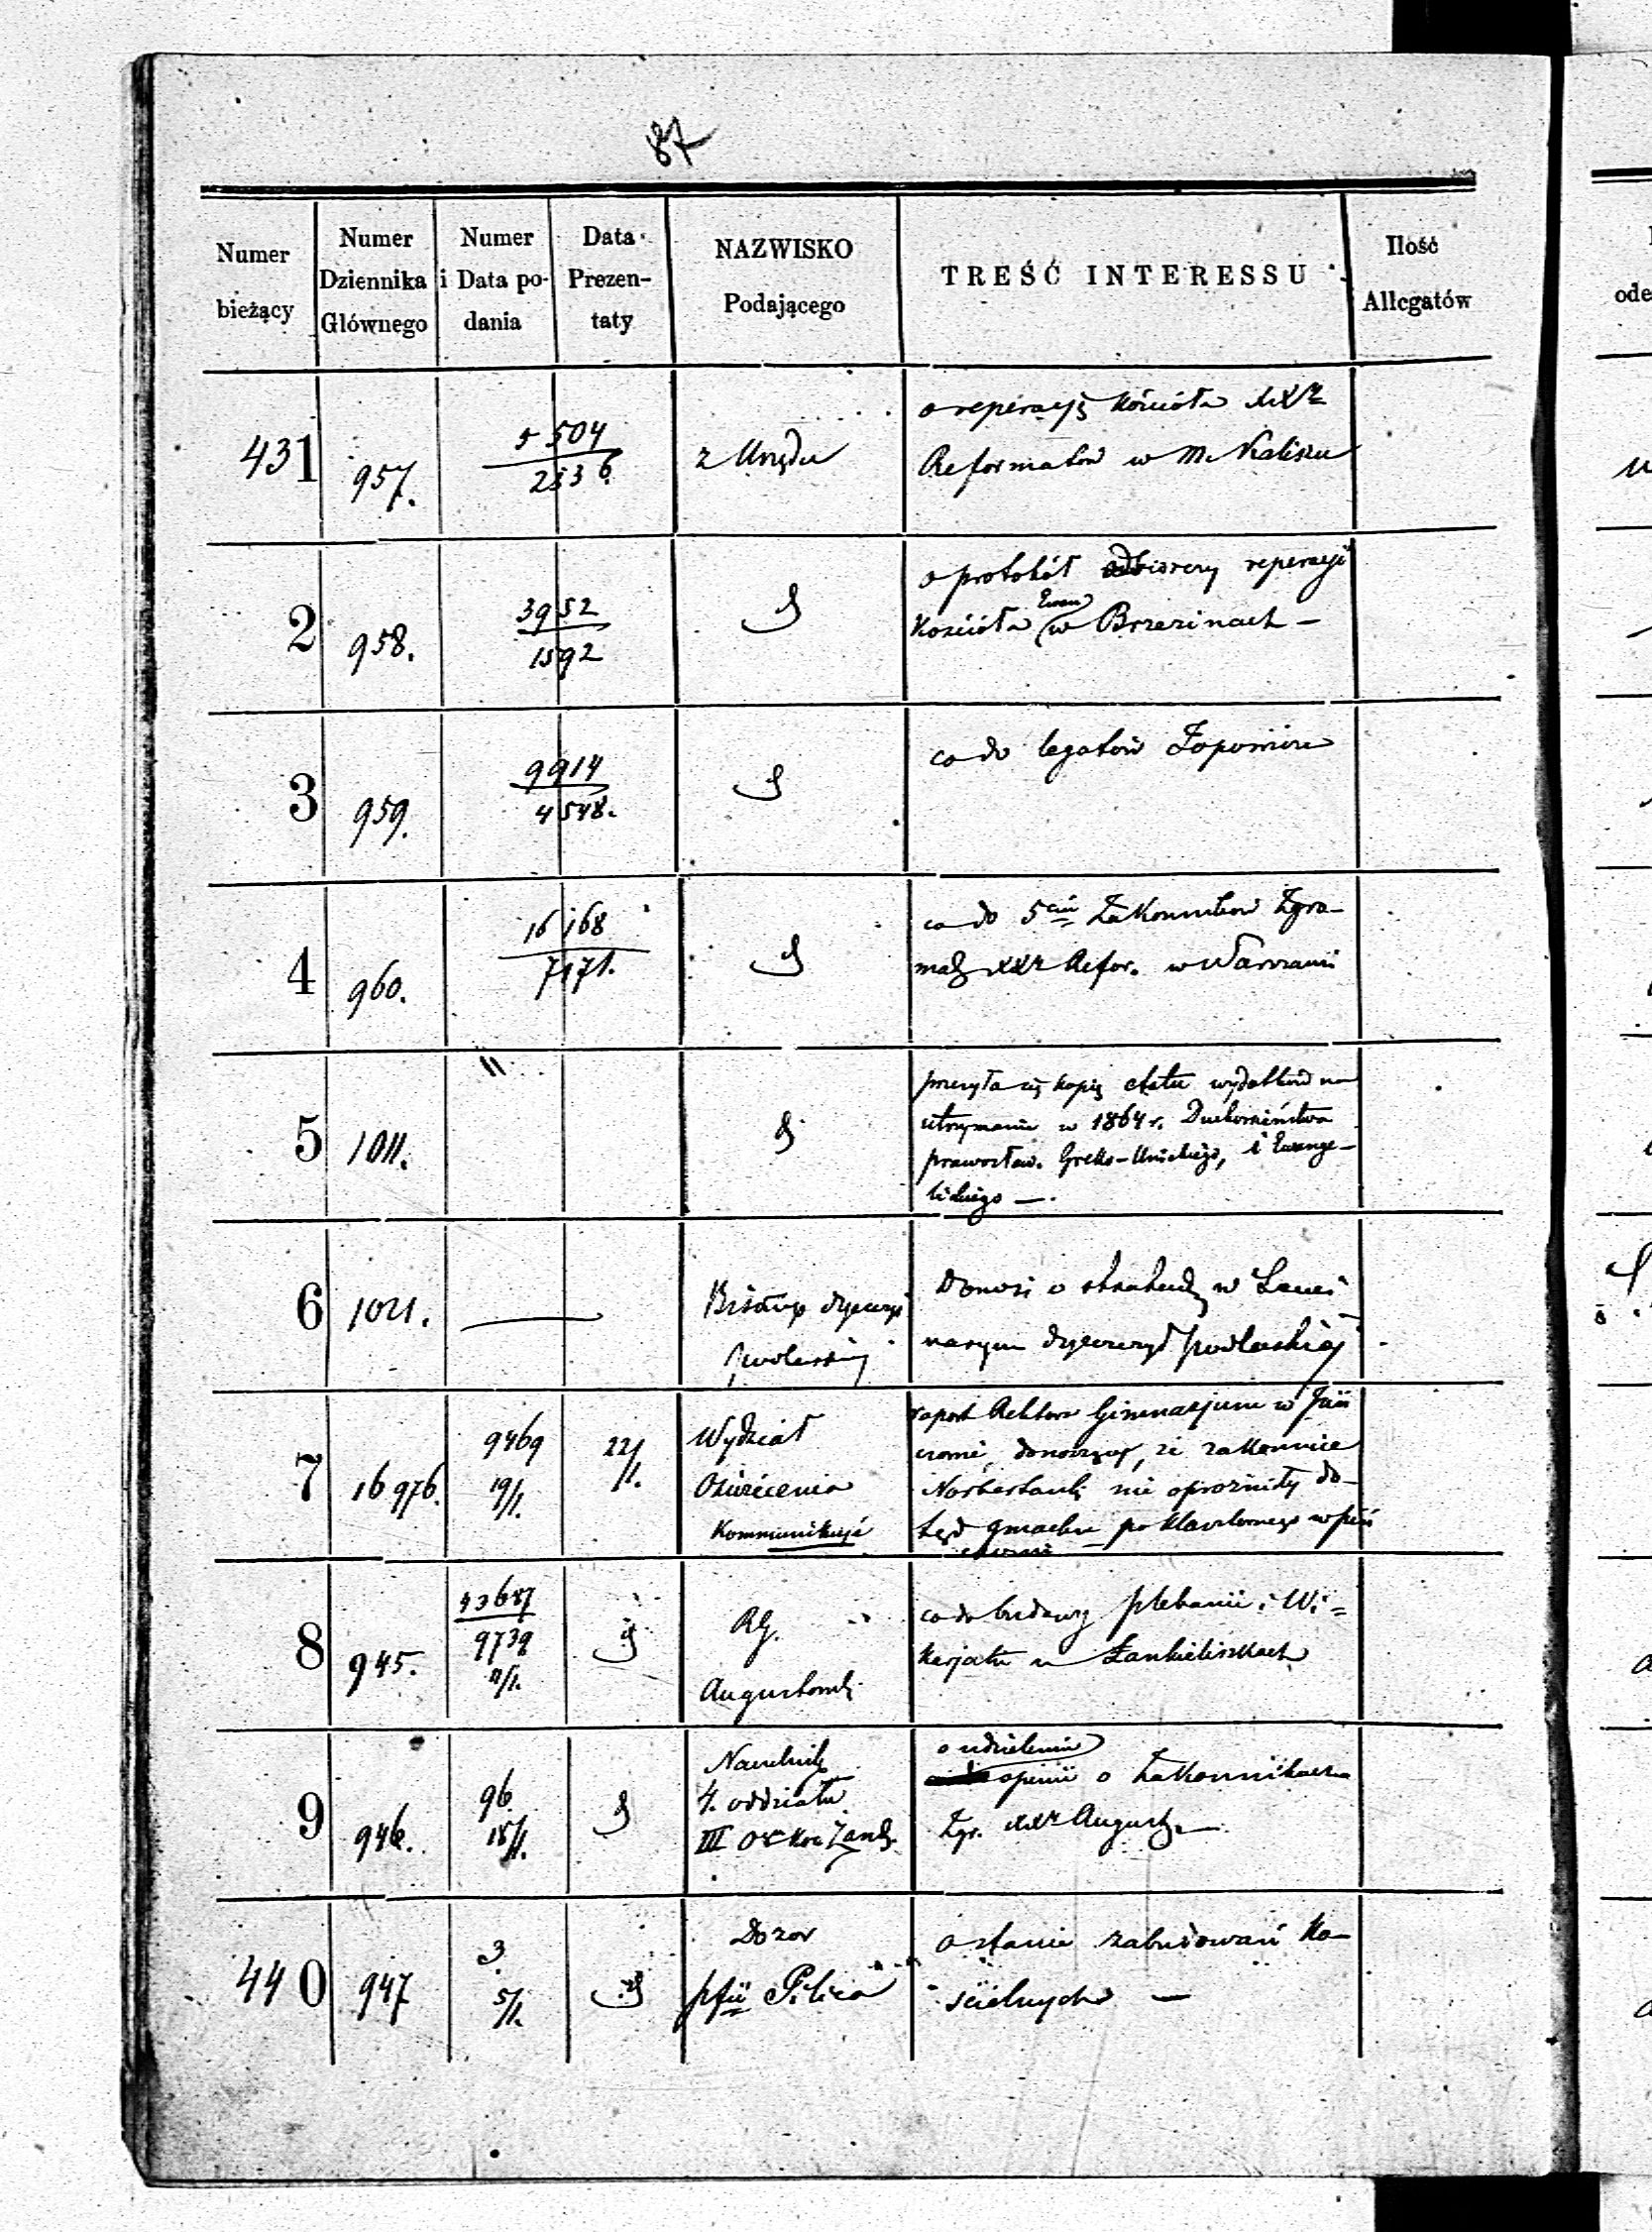 87
Numer bieżący
Numer Dziennika Głównego
Numer i Data podania
Data Prezentaty
NAZWISKO Podającego
TREŚĆ INTERESSU
Ilość Allegatów
431
957.
5504
2536
z Urzędu
o reperacyę Kościoła XXr
Reformatów w M. Kaliszu
2
958.
3952
1592
o protokół odbiorczy reperacyi
Ewan
Kościoła w Brzezinach —
3
959.
9914
4548.
co do legatów
4
960.
16168
7171.
co do 5ciu Zakonników Zgro-
madz XXr Refor. w Warszawie
5
1011.
przesyła się kopię etatu wydatków na
utrzymanie w 1864 r. Duchowieństwa
prawosław. Grecko-Unickiego, i Ewange-
lickiego —.
6
1021.
Biskup dyecezyi
podlaskiej
Donosi o w
naryum dyecezyi podlaskiej
7
16976.
9469
19/1.
22/1.
Wydział
Oświecenia
Kommunikuje
raport Rektora Gimnazjum w Piń
czowie, donoszący, że zakonnice
Norbertanki nie opróżniły do-
tąd gmachu po klasztornego w Piń
czowie
8
945.
43687
9739
RG.
Augustows.
co do budowy plebanii i Wi=
karjatu w Łankieliszkach
9
946.
96
18/1.
Naczelnik
4. oddziału
III Okr Żand.
o udzielenie
opinii o Zakonnikach
Zgr. XXr August. —
440
947
3.
5/1.
Dozor
pfii Pilica
o stanie zabudowań Ko-
ścielnych —